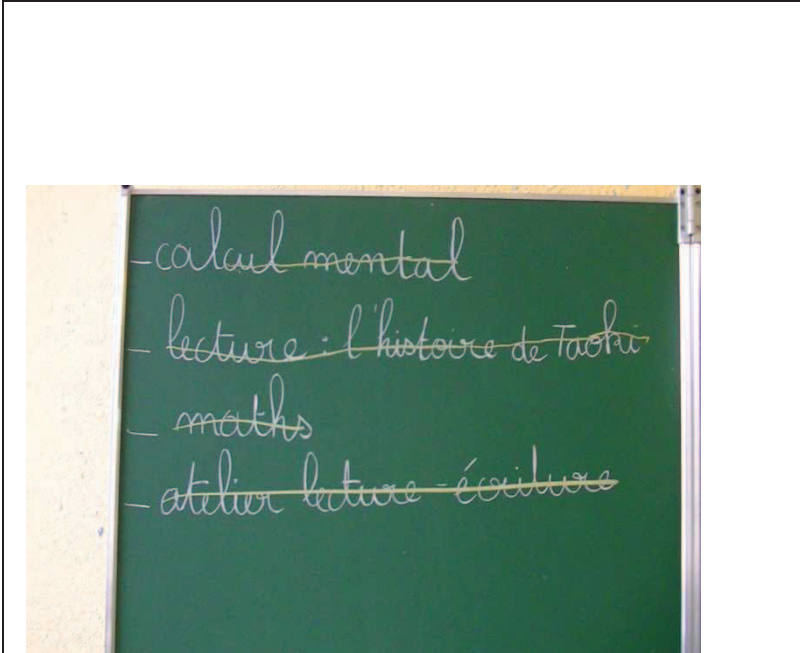 - calcul mental
- lecture : l'histoire de Taoki
- maths
- atelier lecture - écriture